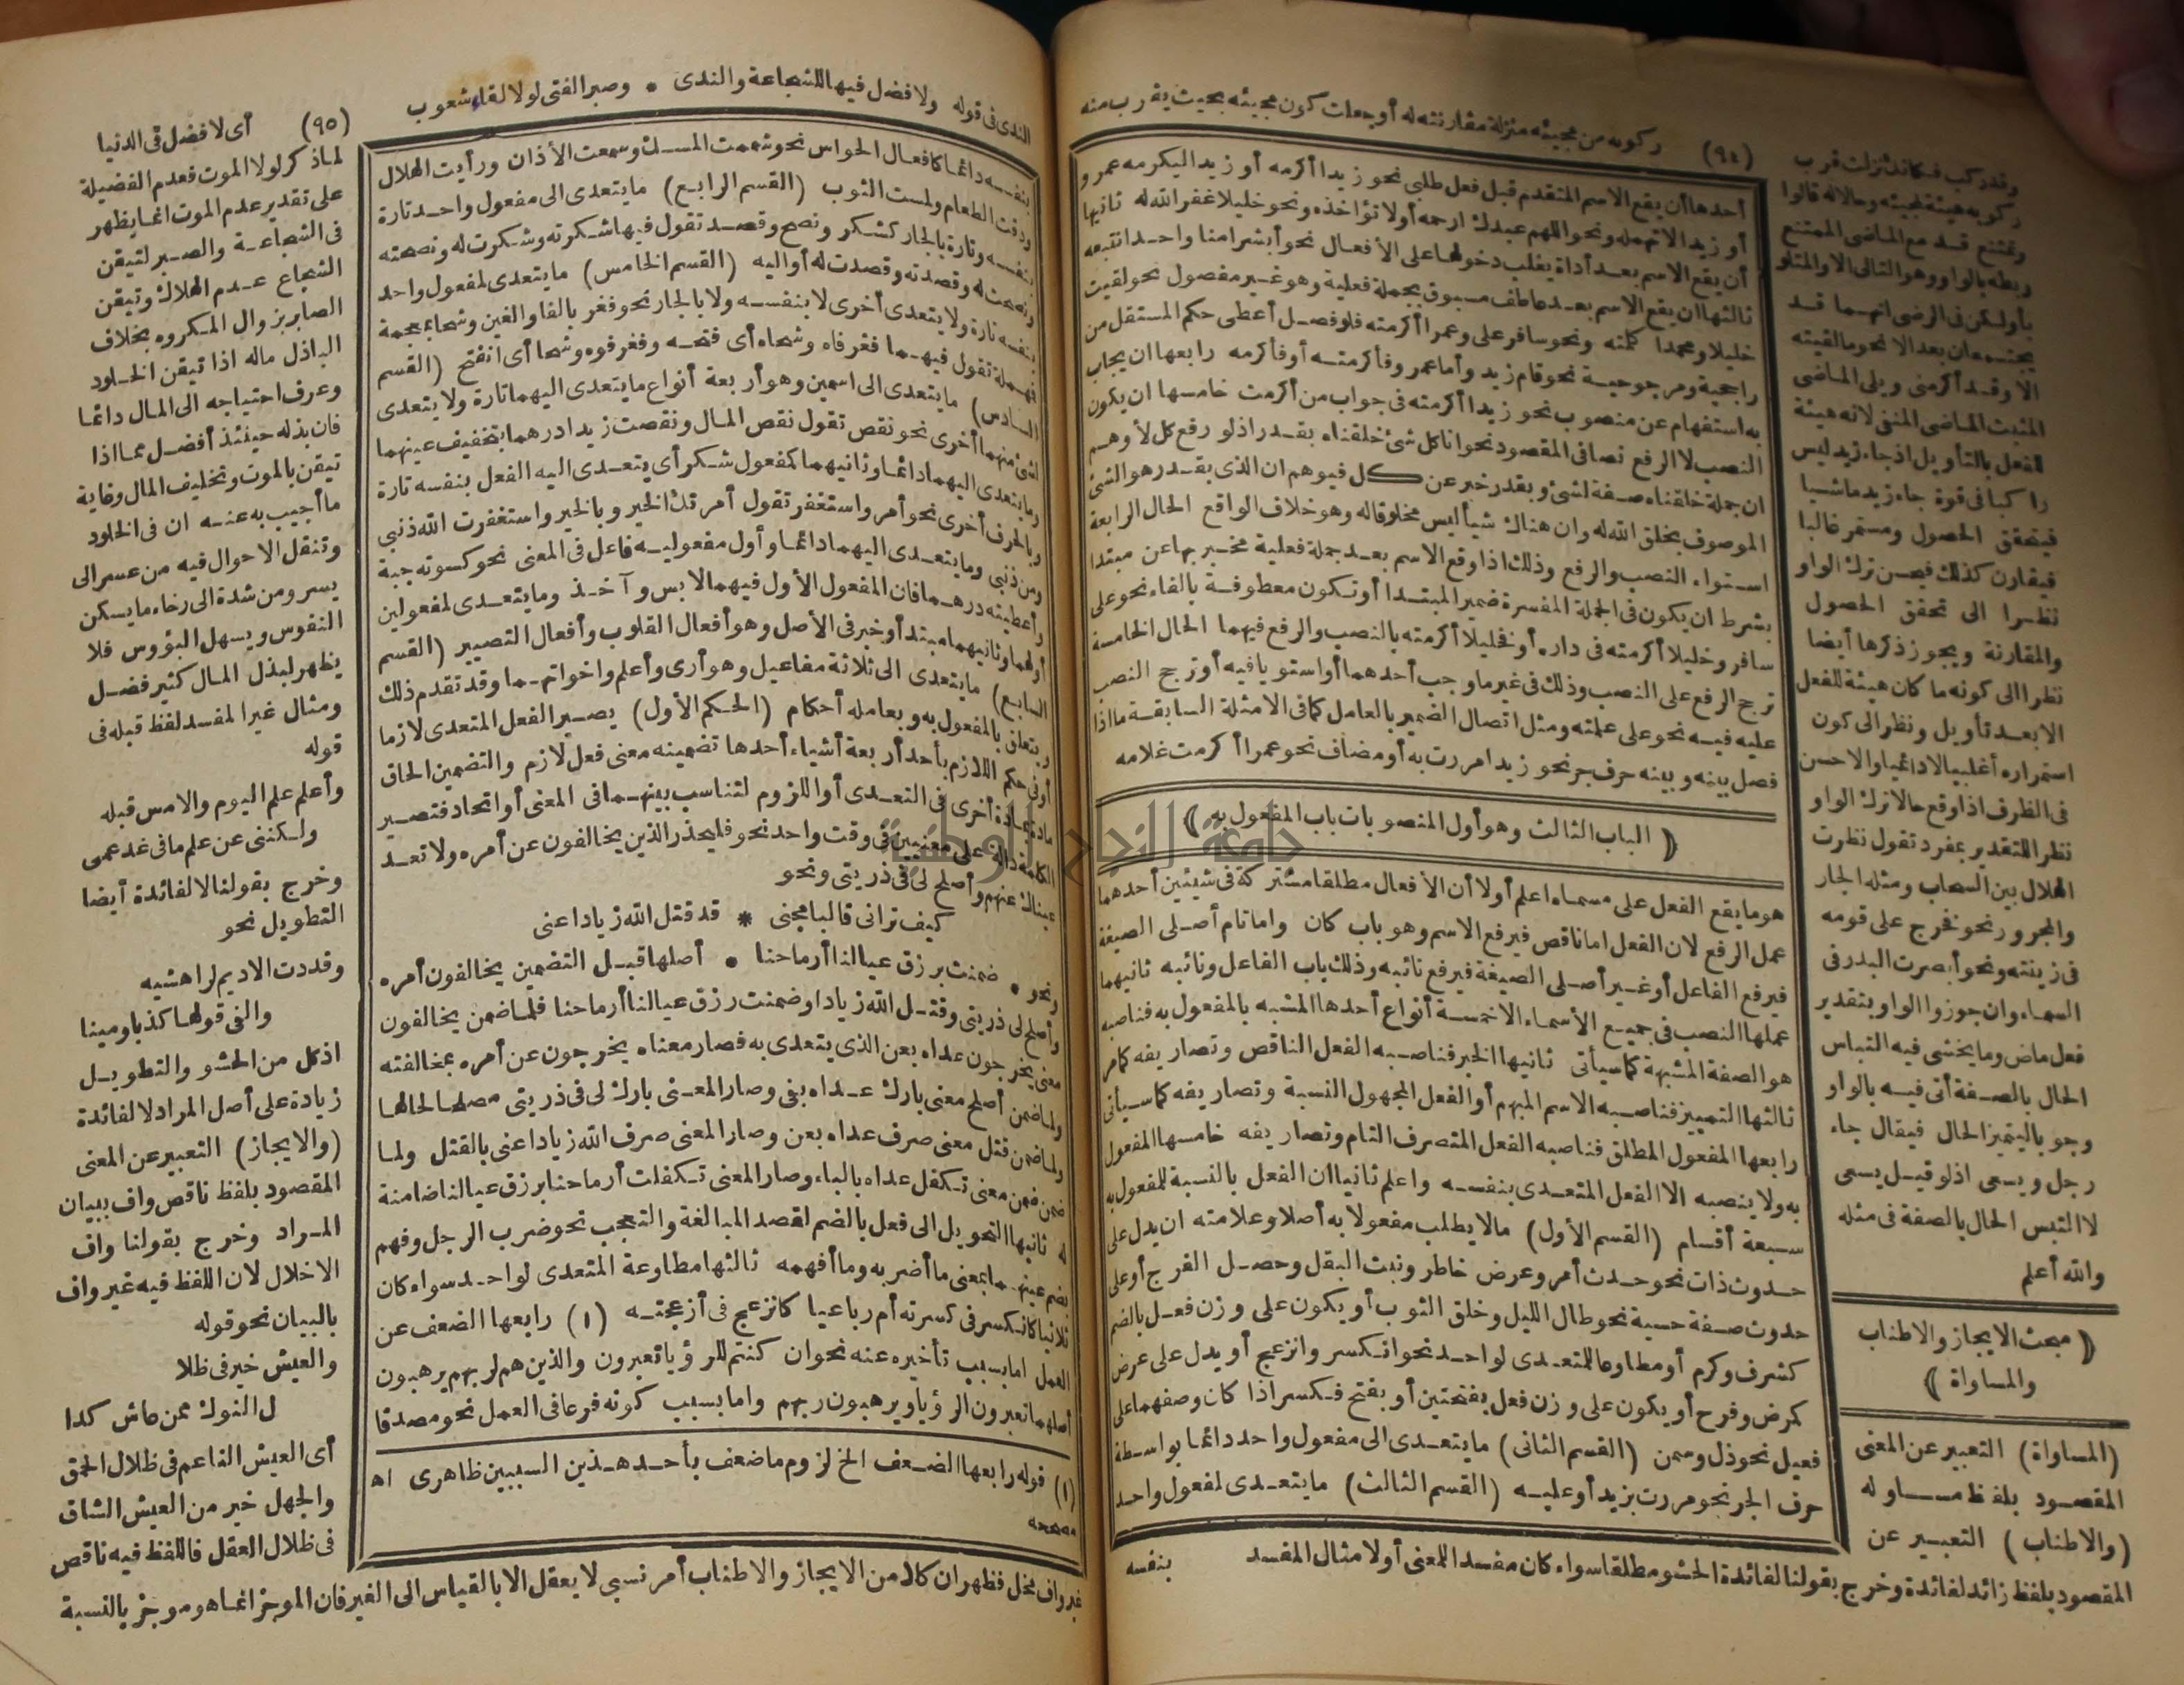 ركوبه من مجيئه منزلة مقارنته له أو جعلت كون مجيئه بحيث يقرب منه
(٩٤)
وقد ركب فكانك نزلت قرب
ركوبه هيئة لمجيئه وحالا له قالوا
وتمتنع قد مع الماضى الممتنع
ربطه بالواو وهو التالى الا والمتلو
بأو لكن فى الرضى انهما قد
يجتمعان بعد الا نحو ما لقيته
الا وقد أكرمنى ويلى الماضى
المثبت الماضى المنفى لانه هيئة
للفعل بالتأويل اذ جاء زيد ليس
راكبا فى قوة جاء زيد ماشيا
فيتحقق الحصول ومستمر غالبا
فيقارن كذلك فيحسن ترك الواو
نظرا الى تحقق الحصول
والمقارنة ويجوز ذكرها أيضا
نظرا الى كونه ما كان هيئة للفعل
الا بعد تأويل ونظر الى كون
استمراره أغلبيا لا دائميا والاحسن
فى الظرف اذا وقع حالا ترك الواو
نظرا للتقدير بمفرد تقول نظرت
الهلال بين السحاب ومثله الجار
والمجرور نحو فخرج على قومه
فى زينته ونحو أبصرت البدر فى
السماء وان جوزوا الواو بتقدير
فعل ماض وما يخشى فيه التباس
الحال بالصفة أتى فيه بالواو
وجوبا ليتميز الحال فيقال جاء
رجل ويسعى اذ لو قيل يسعى
لا التبس الحال بالصفة فى مثله
والله أعلم
﴿ مبحث الايجاز والاطناب
والمساواة ﴾
(المساواة) التعبير عن المعنى
المقصود بلفظ مساو له
(والاطناب) التعبير عن
المقصود بلفظ زائد لفائدة وخرج بقولنا لفائدة الحشو مطلقا سواء كان مفسدا للمعنى أو لا مثال المفسد
أحدها أن يقع الاسم المتقدم قبل فعل طلبى نحو زيدا أكرمه أو زيدا ليكرمه عمرو
أو زيدا لا تهمله ونحو اللهم عبدك ارحمه أو لا تؤاخذه ونحو خليلا غفر الله له ثانيها
أن يقع الاسم بعد أداة يغلب دخولها على الأفعال نحو أبشرا منا واحدا نتبعه
ثالثها ان يقع الاسم بعد عاطف مسبوق بجملة فعلية وهو غير مفصول نحو لقيت
خليلا ومحمدا كلمته ونحو سافر على وعمرا أكرمته فلو فصل أعطى حكم المستقل من
راجحية ومرجوحية نحو قام زيد وأما عمرو فأكرمته أو فأكرمه رابعها ان يجاب
به استفهام عن منصوب نحو زيدا أكرمته فى جواب من أكرمت خامسها ان يكون
النصب لا الرفع نصا فى المقصود نحو انا كل شئ خلقناه بقدر اذ لو رفع كل لأوهم
ان جملة خلقناه صفة لشئ وبقدر خبر عن كل فيوهم ان الذى بقدر هو الشئ
الموصوف بخلق الله له وان هناك شيأ ليس مخلوقا له وهو خلاف الواقع الحال الرابعة
استواء النصب والرفع وذلك اذا وقع الاسم بعد جملة فعلية مخبر بها عن مبتدا
بشرط ان يكون فى الجملة المفسرة ضمير المبتدا أو تكون معطوفة بالفاء نحو على
سافر وخليلا أكرمته فى داره أو فخليلا أكرمته بالنصب والرفع فيهما الحال الخامسة
ترجح الرفع على النصب وذلك فى غير ما وجب أحدهما أو استويا فيه أو ترجح النصب
عليه فيه نحو على علمته ومثل اتصال الضمير بالعامل كما فى الامثلة السابقة ما اذا
فصل بينه وبينه حرف جر نحو زيدا مررت به أو مضاف نحو عمرا أكرمت غلامه
﴿ الباب الثالث وهو أول المنصوبات باب المفعول به ﴾
هو ما يقع الفعل على مسماه اعلم أولا أن الأفعال مطلقا مشتركة فى شيئين أحدهما
عمل الرفع لان الفعل اما ناقص فيرفع الاسم وهو باب كان واما تام أصلى الصيغة
فيرفع الفاعل أو غير أصلى الصيغة فيرفع نائبه وذلك باب الفاعل ونائبه ثانيهما
عملها النصب فى جميع الأسماء الا خمسة أنواع أحدها المشبه بالمفعول به فناصبه
هو الصفة المشبهة كما سيأتى ثانيها الخبر فناصبه الفعل الناقص وتصاريفه كما مر
ثالثها التمييز فناصبه الاسم المبهم أو الفعل المجهول النسبة وتصاريفه كما سيأتى
رابعها المفعول المطلق فناصبه الفعل المتصرف التام وتصاريفه خامسها المفعول
به ولا ينصبه الا الفعل المتعدى بنفسه واعلم ثانيا ان الفعل بالنسبة للمفعول به
سبعة أقسام (القسم الأول) ما لا يطلب مفعولا به أصلا وعلامته ان يدل على
حدوث ذات نحو حدث أمر وعرض خاطر ونبت البقل وحصل الفرج أو على
حدوث صفة حسية نحو طال الليل وخلق الثوب أو يكون على وزن فعل بالضم
كشرف وكرم أو مطاوعا للمتعدى لواحد نحو انكسر وانزعج أو يدل على عرض
كمرض وفرح أو يكون على وزن فعل بفتحتين أو بفتح فكسر اذا كان وصفهما على
فعيل نحو ذل وسمن (القسم الثانى) ما يتعدى الى مفعول واحد دائما بواسطة
حرف الجر نحو مررت بزيد أو عليه (القسم الثالث) ما يتعدى لمفعول واحد
بنفسه
الندى فى قوله ولا فضل فيها للشجاعة والندى • وصبر الفتى لولا لقاء شعوب
(٩٥)
بنفسه دائما كافعال الحواس نحو شممت المسك وسمعت الأذان ورأيت الهلال
وذقت الطعام ولمست الثوب (القسم الرابع) ما يتعدى الى مفعول واحد تارة
بنفسه وتارة بالجار كشكر ونصح وقصد تقول فيها شكرته وشكرت له ونصحته
ونصحت له وقصدته وقصدت له أو اليه (القسم الخامس) ما يتعدى لمفعول واحد
بنفسه تارة ولا يتعدى أخرى لا بنفسه ولا بالجار نحو فغر بالفا والغين وشحا بمعجمة
فمهملة تقول فيهما فغر فاه وشحاه أى فتحه وفغر فوه وشحا أى انفتح (القسم
السادس) ما يتعدى الى اسمين وهو أربعة أنواع ما يتعدى اليهما تارة ولا يتعدى
لشئ منهما أخرى نحو نقص تقول نقص المال ونقصت زيدا درهما بتخفيف عينهما
وما يتعدى اليهما دائما وثانيهما كمفعول شكر أى يتعدى اليه الفعل بنفسه تارة
وبالحرف أخرى نحو أمر واستغفر تقول أمرتك الخير وبالخير واستغفرت الله ذنبى
ومن ذنبى وما يتعدى اليهما دائما وأول مفعوليه فاعل فى المعنى نحو كسوته جبة
وأعطيته درهما فان المفعول الأول فيهما لابس وآخذ وما يتعدى لمفعولين
أولهما وثانيهما مبتدأ وخبر فى الأصل وهو أفعال القلوب وأفعال التصيير (القسم
السابع) ما يتعدى الى ثلاثة مفاعيل وهو أرى وأعلم واخواتهما وقد تقدم ذلك
ويتعلق بالمفعول به وبعامله أحكام (الحكم الأول) يصير الفعل المتعدى لازما
أو فى حكم اللازم بأحد أربعة أشياء أحدها تضمينه معنى فعل لازم والتضمين الحاق
مادة بمادة أخرى فى التعدى أو اللزوم لتناسب بينهما فى المعنى أو اتحاد فتصير
الكلمة دالة على معنيين فى وقت واحد نحو فليحذر الذين يخالفون عن أمره ولا تعد
عيناك عنهم وأصلح لى فى ذريتى ونحو
كيف ترانى قالبا مجنى * قد قتل الله زيادا عنى
ونحو • ضمنت برزق عيالنا أرماحنا • أصلها قبل التضمين يخالفون أمره
وأصلح لى ذريتى وقتل الله زيادا وضمنت رزق عيالنا أرماحنا فلما ضمن يخالفون
معنى يخرجون عداه بعن الذى يتعدى به فصار معناه يخرجون عن أمره بمخالفته
ولما ضمن أصلح معنى بارك عداه بفى وصار المعنى بارك لى فى ذريتى مصلحا لحالها
ولما ضمن قتل معنى صرف عداه بعن وصار المعنى صرف الله زيادا عنى بالقتل ولما
ضمن ضمن معنى تكفل عداه بالباء وصار المعنى تكفلت أرماحنا برزق عيالنا ضامنة
له ثانيها التحويل الى فعل بالضم لقصد المبالغة والتعجب نحو ضرب الرجل وفهم
بضم عينهما بمعنى ما أضربه وما أفهمه ثالثها مطاوعة المتعدى لواحد سواء كان
ثلاثيا كانكسر فى كسرته أم رباعيا كانزعج فى أزعجته (١) رابعها الضعف عن
العمل اما بسبب تأخيره عنه نحو ان كنتم للرؤيا تعبرون والذين هم لربهم يرهبون
أصلهما تعبرون الرؤيا ويرهبون ربهم واما بسبب كونه فرعا فى العمل نحو مصدقا
(١) قوله رابعها الضعف الخ لزوم ما ضعف بأحد هذين السببين ظاهرى اه
مصححه
أى لا فضل فى الدنيا
لما ذكر لولا الموت فعدم الفضيلة
على تقدير عدم الموت انما يظهر
فى الشجاعة والصبر لتيقن
الشجاع عدم الهلاك وتيقن
الصابر بزوال المكروه بخلاف
الباذل ماله اذا تيقن الخلود
وعرف احتياجه الى المال دائما
فان بذله حينئذ أفضل مما اذا
تيقن بالموت وتخليف المال وغاية
ما أجيب به عنه ان فى الخلود
وتنقل الاحوال فيه من عسر الى
يسر ومن شدة الى رخاء ما يسكن
النفوس ويسهل البؤوس فلا
يظهر لبذل المال كثير فضل
ومثال غير المفسد لفظ قبله فى
قوله
وأعلم علم اليوم والامس قبله
ولكننى عن علم ما فى غد عمى
وخرج بقولنا لا لفائدة أيضا
التطويل نحو
وقددت الاديم لراهشيه
والفى قولها كذبا ومينا
اذ كل من الحشو والتطويل
زيادة على أصل المراد لا لفائدة
(والايجاز) التعبير عن المعنى
المقصود بلفظ ناقص واف ببيان
المراد وخرج بقولنا واف
الاخلال لان اللفظ فيه غير واف
بالبيان نحو قوله
والعيش خير فى ظلا
ل النوك ممن عاش كدا
أى العيش الناعم فى ظلال الحمق
والجهل خير من العيش الشاق
فى ظلال العقل فاللفظ فيه ناقص
غير واف مخل فظهر ان كلا من الايجاز والاطناب أمر نسبى لا يعقل الا بالقياس الى الغير فان الموجز انما هو موجز بالنسبة
جامعة النجاح الوطنية